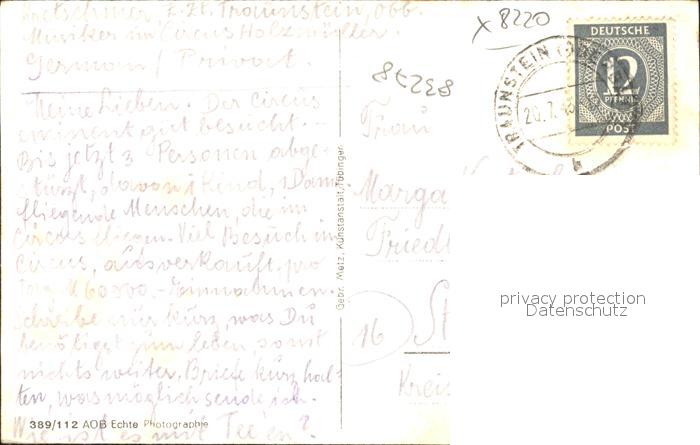 Kretschmer, z. Zt. Traunstein, Obb.
Musiker im Circus Holzmüller.
German / Privat
Meine Lieben. Der Circus
eminent gut besucht.
Bis jetzt 3 Personen abge-
stürzt, davon 1 Kind, 1 Dame
fliegende Menschen, die im
Circus fliegen. Viel Besuch im
Circus, ausverkauft. pro
Tag M 60000,- Einnahmen.
Schreibe nur kurz, was Du
benötigst zum leben, sonst
nichts weiter. Briefe kurz hal-
ten, was möglich sende ich.
Wie ist es mit Tee'en?
389/112 AOB Echte Photographie
Gebr. Metz, Kunstanstalt, Tübingen
x 8220
83278
TRAUNSTEIN
20.7.
b
DEUTSCHE
12
PFENNIG
POST
Frau
Marga
Friedr
16
St
Kreis
privacy protection
Datenschutz